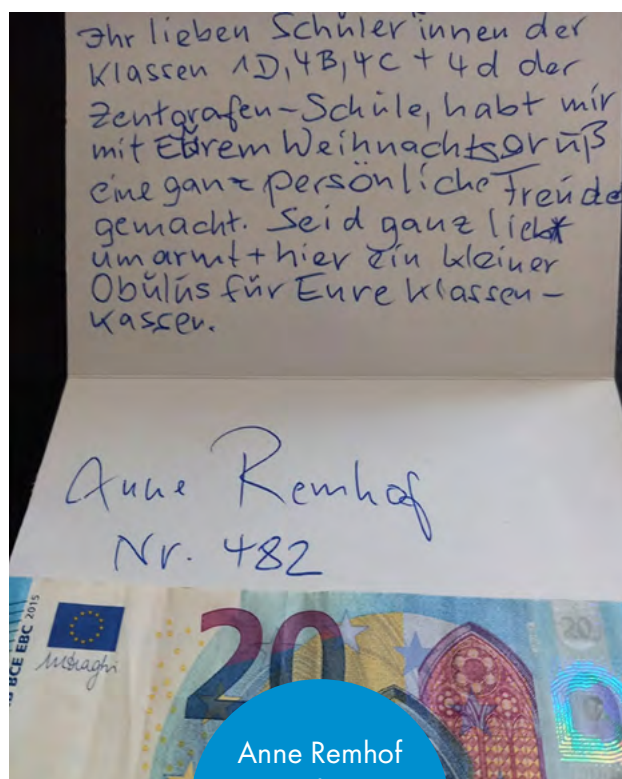 Ihr lieben Schüler innen der
Klassen 1D, 4B, 4C + 4d der
Zentgrafen-Schule, habt mir
mit Eurem Weihnachtsgruß
eine ganz persönliche Freude
gemacht. Seid ganz lieb
umarmt + hier ein kleiner
Obulus für Eure Klassen-
kassen.
Anne Remhof
Nr. 482
BCE EBC 2015
MDraghi
20
20
Anne Remhof